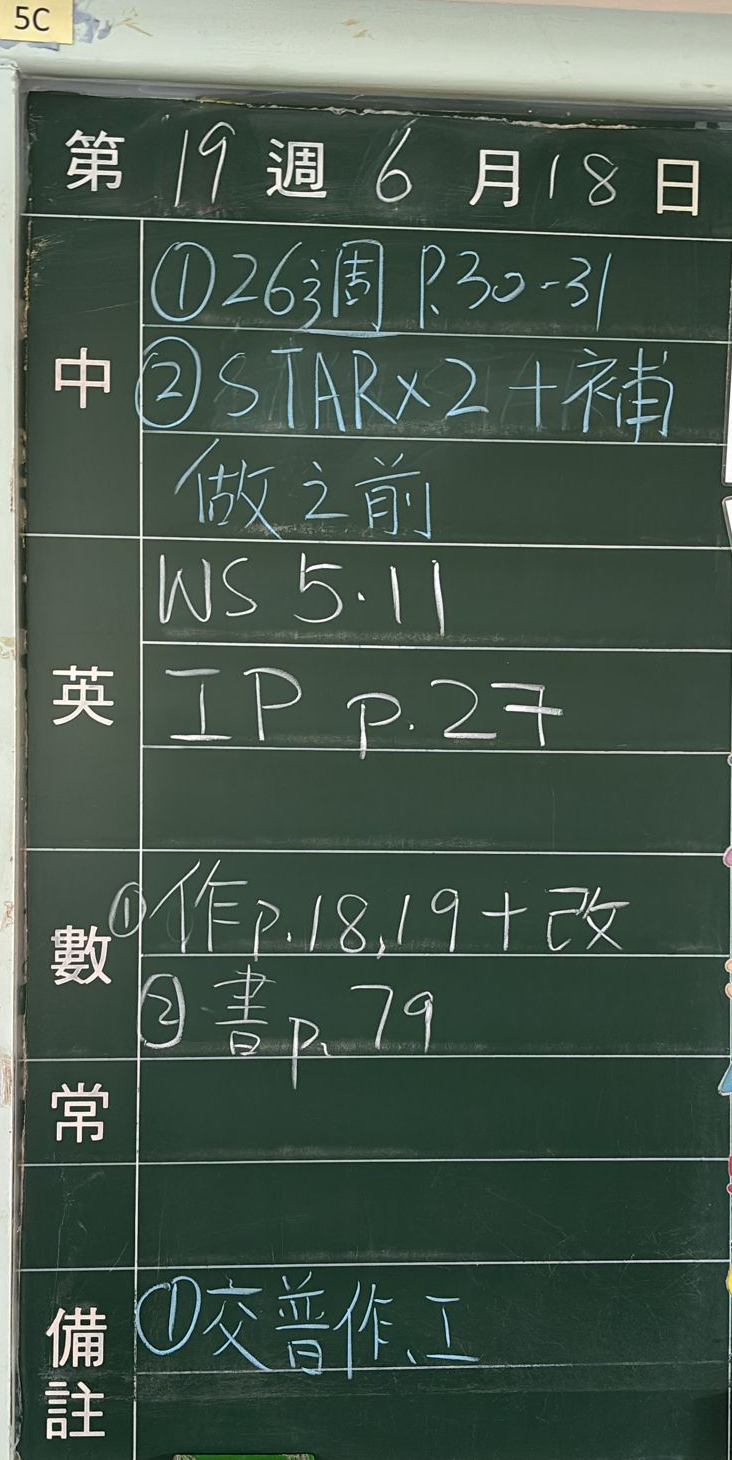 5C
第 19 週 6 月 18 日
中
①26週 P.30-31
②STAR×2+補
做之前
英
WS 5.11
IP p.27
數
①作p.18,19+改
②書p.79
常
備註
①交普作、工